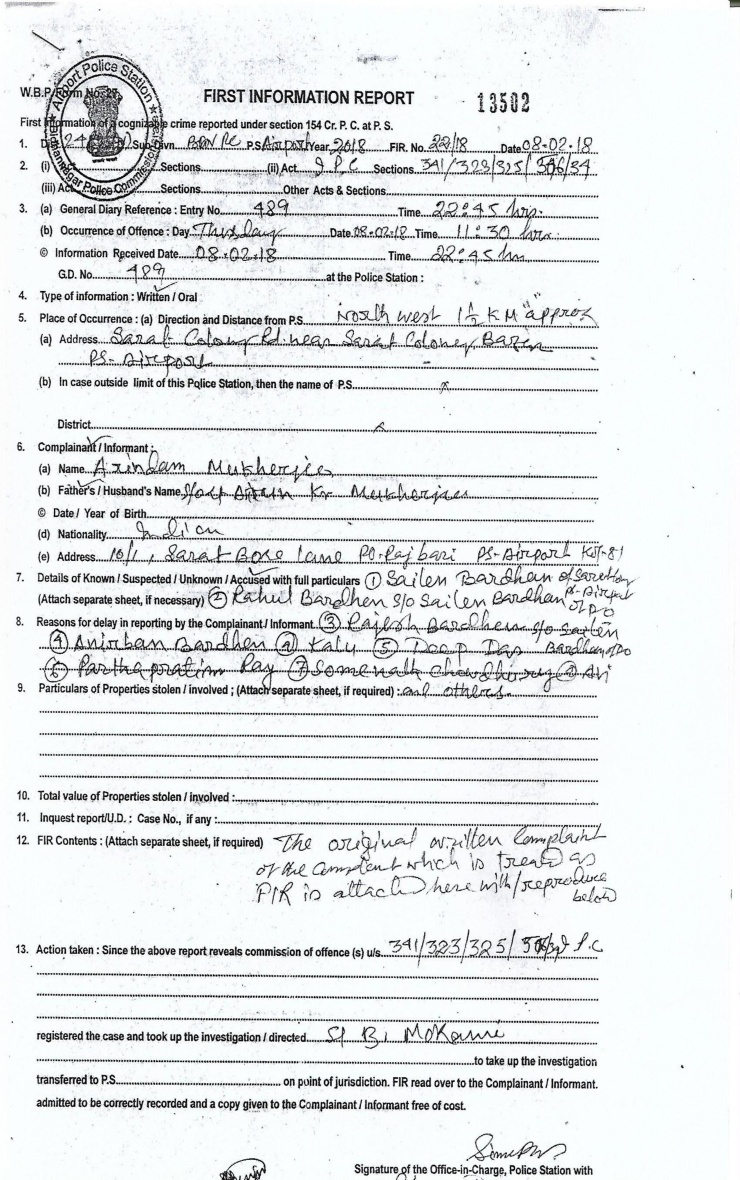 Airport Police Station
W.B.P. Form No. 27
FIRST INFORMATION REPORT
13502
First Information of a cognizable crime reported under section 154 Cr. P. C. at P. S.
1. Sub-Divn. P.S. Airport Year 2018 FIR. No. 22/18 Date 08-02-18
2. (i) Sections (ii) Act I.P.C Sections 341/323/325/506/34
(iii) Act Sections Other Acts & Sections
3. (a) General Diary Reference : Entry No. 489 Time 22:45 hrs.
(b) Occurrence of Offence : Day Thusday Date 08-02-18 Time 11:30 hrs
© Information Received Date 08-02-18 Time 22:45 hrs
G.D. No. 489 at the Police Station :
4. Type of information : Written / Oral
5. Place of Occurrence : (a) Direction and Distance from P.S. North west 1½ KM "approx"
(a) Address Sarat Colony Rd. near Sarat Coloney Bazar
PS- Airport
(b) In case outside limit of this Police Station, then the name of P.S. x
District x
6. Complainant / Informant :
(a) Name Arindam Mukherjee
(b) Father's / Husband's Name Kr Mukherjee
© Date / Year of Birth
(d) Nationality Indian
(e) Address 10/1, Sarat Bose lane PO-Rajbari PS-Airport Kol-81
7. Details of Known / Suspected / Unknown / Accused with full particulars ① Sailen Bardhan of
(Attach separate sheet, if necessary) ② Rahul Bardhen S/o Sailen Bardhan PS-Airport of Do
8. Reasons for delay in reporting by the Complainant / Informant ③ Rajesh Bardhen s/o Sailen
④ Anirban Bardhen Kalu ⑤ Deep Das Bardhan of Do
⑥ Parthapratim Ray ⑦ Somenath Chowdhoury
9. Particulars of Properties stolen / involved ; (Attach separate sheet, if required) : and others.
10. Total value of Properties stolen / involved :
11. Inquest report/U.D. : Case No., if any :
12. FIR Contents : (Attach separate sheet, if required) The original written Complaint
of the which is treated as
FIR is attached here with/reproduce
below
13. Action taken : Since the above report reveals commission of offence (s) u/s. 341/323/325/ I.P.C
registered the case and took up the investigation / directed SI B.
to take up the investigation
transferred to P.S. on point of jurisdiction. FIR read over to the Complainant / Informant.
admitted to be correctly recorded and a copy given to the Complainant / Informant free of cost.
Signature of the Office-in-Charge, Police Station with